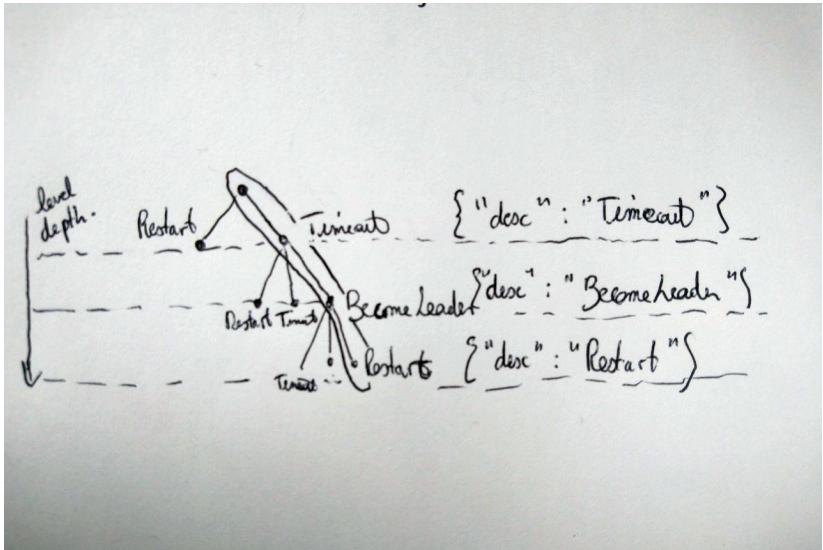 level
depth.
Restart
Timeout
{"desc" : "Timeout"}
Restart Timeout
BecomeLeader
{"desc" : "BecomeLeader"}
Timeout
Restart
{"desc" : "Restart"}